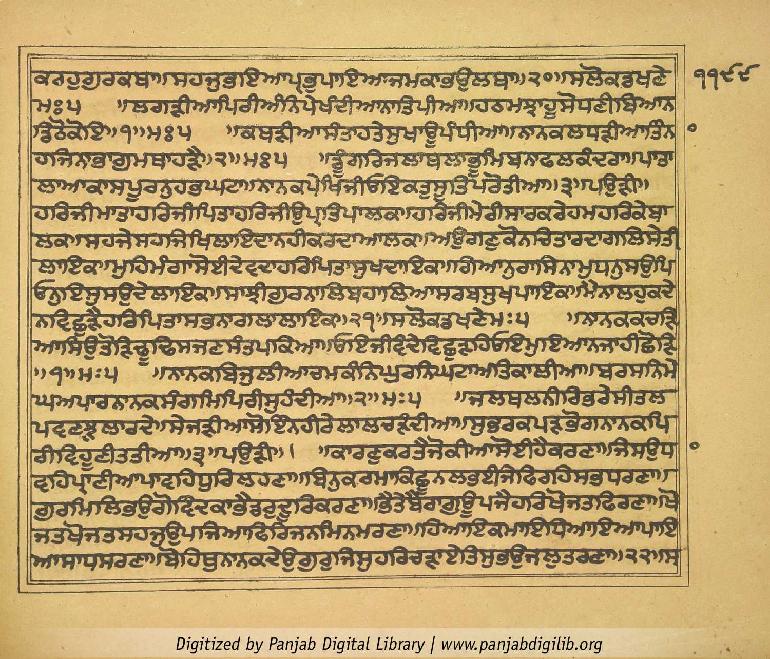 ਕਰਹੁਗੁਰਕਥਾ॥ਸਹਜੁਭਇਆਪ੍ਰਭੁਪਾਇਆਜਮਕਾਭਉਲਥਾ॥੨੦॥ਸਲੋਕਡਖਣੇ ੧੧੯੯
ਮਃ੫ ॥ਲਗੜੀਆਪਿਰੀਅੰਨਿਪੇਖੰਦੀਆਨਾਤਿਪੀਆ॥ਹਭਮਝਾਹੂਸੋਧਣੀਬਿਆਨ
ਡਿਠੋਕੋਇ॥੧॥ਮਃ੫ ॥ਕਥੜੀਆਸੰਤਾਹਤੇਸੁਖਾਊਪੰਧੀਆ॥ਨਾਨਕਲਧੜੀਆਤਿੰਨ
ਹਾਜਿਨਾਭਾਗੁਮਥਾਹੜੈ॥੨॥ਮਃ੫ ॥ਡੂੰਗਰਿਜਲਾਥਲਾਭੂਮਿਬਨਾਫਲਕੰਦਰਾ॥ਪਾਤਾ
ਲਾਆਕਾਸਪੂਰਨੁਹਭਘਟਾ॥ਨਾਨਕਪੇਖਿਜੀਓਇਕਤੁਸੂਤਿਪਰੋਤੀਆ॥੩॥ਪਉੜੀ॥
ਹਰਿਜੀਮਾਤਾਹਰਿਜੀਪਿਤਾਹਰਿਜੀਉਪ੍ਰਤਿਪਾਲਕ॥ਹਰਿਜੀਮੇਰੀਸਾਰਕਰੇਹਮਹਰਿਕੇਬਾ
ਲਕ॥ਸਹਜੇਸਹਜਿਖਿਲਾਇਦਾਨਹੀਕਰਦਾਆਲਕ॥ਅਉਗਣੁਕੋਨਚਿਤਾਰਦਾਗਲਿਸੇਤੀ
ਲਾਇਕ॥ਮੁਹਿਮੰਗਾਸੋਈਦੇਵਦਾਹਰਿਪਿਤਾਸੁਖਦਾਇਕ॥ਗਿਆਨੁਰਾਸਿਨਾਮੁਧਨੁਸਉਪਿ
ਓਨੁਇਸੁਸਉਦੇਲਾਇਕ॥ਸਾਝੀਗੁਰਨਾਲਿਬਹਾਲਿਆਸਰਬਸੁਖਪਾਇਕ॥ਮੈਨਾਲਹੁਕਦੇ
ਨਵਿਛੁੜੈਹਰਿਪਿਤਾਸਭਨਾਗਲਾਲਾਇਕ॥੨੧॥ਸਲੋਕਡਖਣੇਮਃ੫ ॥ਨਾਨਕਕਚੜਿ
ਆਸਿਉਤੋੜਿਢੂਢਿਸਜਣਸੰਤਪਕਿਆ॥ਓਇਜੀਵੰਦੇਵਿਛੁੜਹਿਓਇਮੁਇਆਨਜਾਹੀਛੋੜਿ
॥੧॥ਮਃ੫ ॥ਨਾਨਕਬਿਜੁਲੀਆਚਮਕੰਨਿਘੁਰਨਿਘਟਾਅਤਿਕਾਲੀਆ॥ਬਰਸਨਿਮੇ
ਘਅਪਾਰਨਾਨਕਸੰਗਮਿਪਿਰੀਸੁਹੰਦੀਆ॥੨॥ਮਃ੫ ॥ਜਲਥਲਨੀਰਿਭਰੇਸੀਤਲ
ਪਵਣਝੁਲਾਰਦੇ॥ਸੇਜੜੀਆਸੋਇੰਨਹੀਰੇਲਾਲਜੜੰਦੀਆ॥ਸੁਭਰਕਪੜਭੋਗਨਾਨਕਪਿ
ਰੀਵਿਹੂਣੀਤਤੀਆ॥੩॥ਪਉੜੀ॥ ਕਾਰਣੁਕਰਤੈਜੋਕੀਆਸੋਈਹੈਕਰਣਾ॥ਜੇਸਉਧਾ
ਵਹਿਪ੍ਰਾਣੀਆਪਾਵਹਿਧੁਰਿਲਹਣਾ॥ਬਿਨੁਕਰਮਾਕਿਛੂਨਲਭਈਜੇਫਿਰਹਿਸਭਧਰਣਾ॥
ਗੁਰਮਿਲਿਭਉਗੋਵਿੰਦਕਾਭੈਡਰੁਦੂਰਿਕਰਣਾ॥ਭੈਤੇਬੈਰਾਗੁਊਪਜੈਹਰਿਖੋਜਤਫਿਰਣਾ॥ਖੋ
ਜਤਖੋਜਤਸਹਜੁਉਪਜਿਆਫਿਰਿਜਨਮਿਨਮਰਣਾ॥ਹਿਆਇਕਮਾਇਧਿਆਇਆਪਾਇ
ਆਸਾਧਸਰਣਾ॥ਬੋਹਿਥੁਨਾਨਕਦੇਉਗੁਰੁਜਿਸੁਹਰਿਚੜਾਏਤਿਸੁਭਉਜਲੁਤਰਣਾ॥੨੨॥ਸ
Digitized by Panjab Digital Library | www.panjabdigilib.org